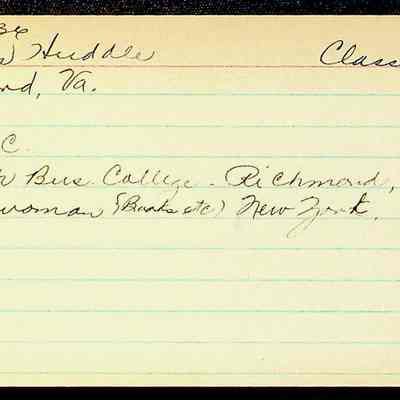 36
Huddle Class
nd, Va.
C.
Bus. College - Richmond,
woman (Banks etc) New York.